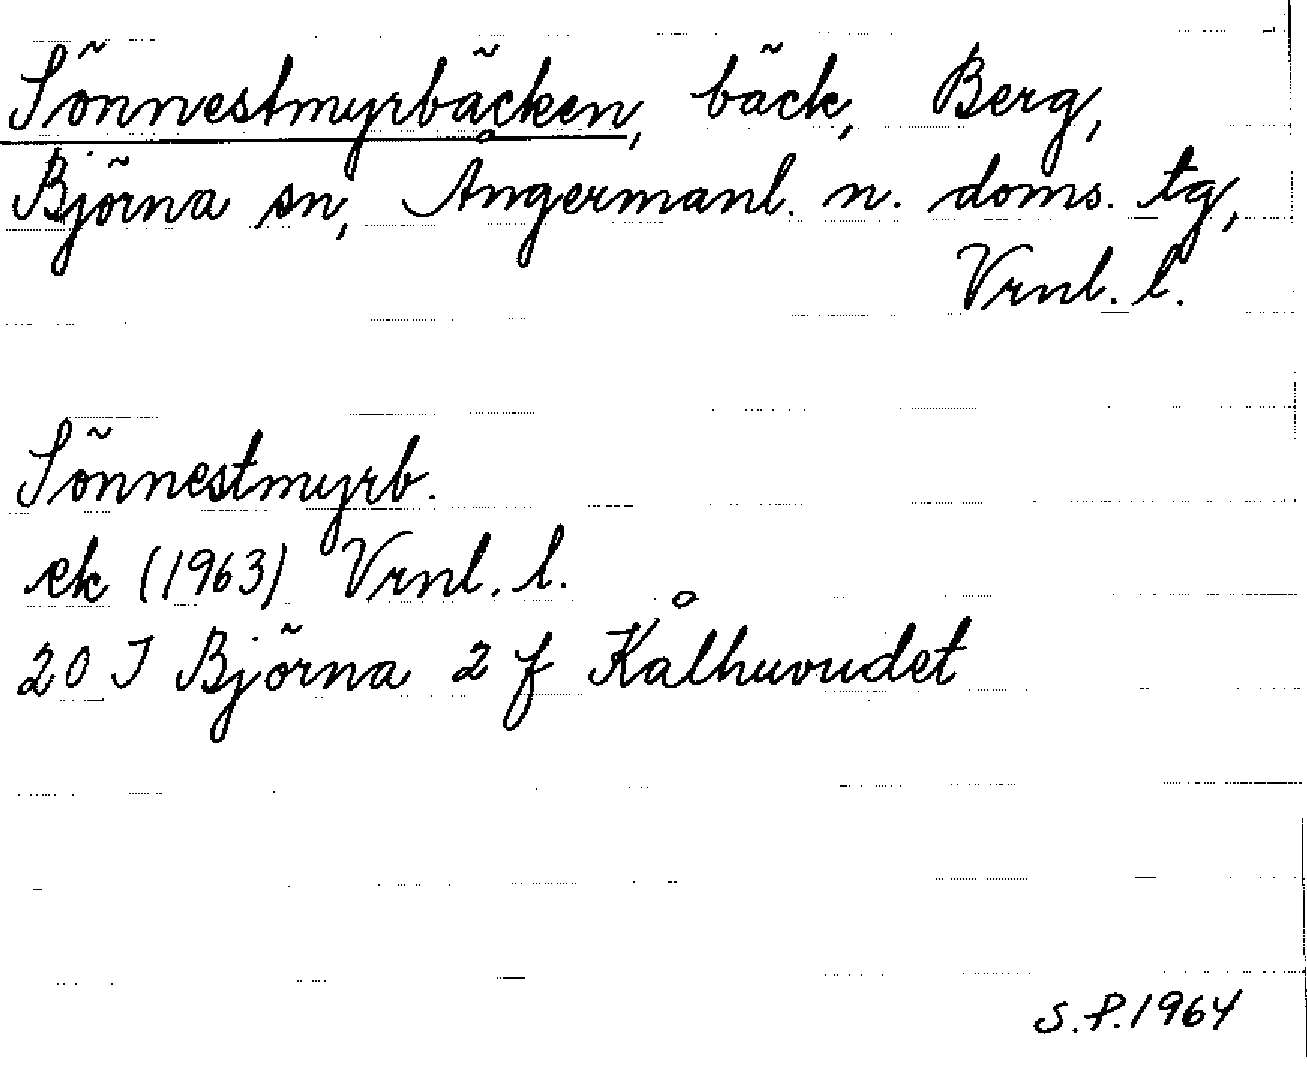 Sönnestmyrbäcken, bäck, Berg,
Björna sn, Ångermanl. n. doms. tg,
Vrnl. l.
Sönnestmyrb.
ek (1963) Vrnl. l.
20 I Björna 2 f Kålhuvudet
S.P. 1964